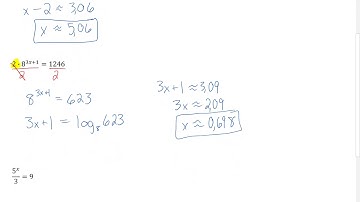 x - 2 ≈ 3.06
x ≈ 5.06
2 · 8^(3x+1) = 1246
2 2
8^(3x+1) = 623
3x + 1 = log₈ 623
3x + 1 ≈ 3.09
3x ≈ 2.09
x ≈ 0.698
5^x/3 = 9